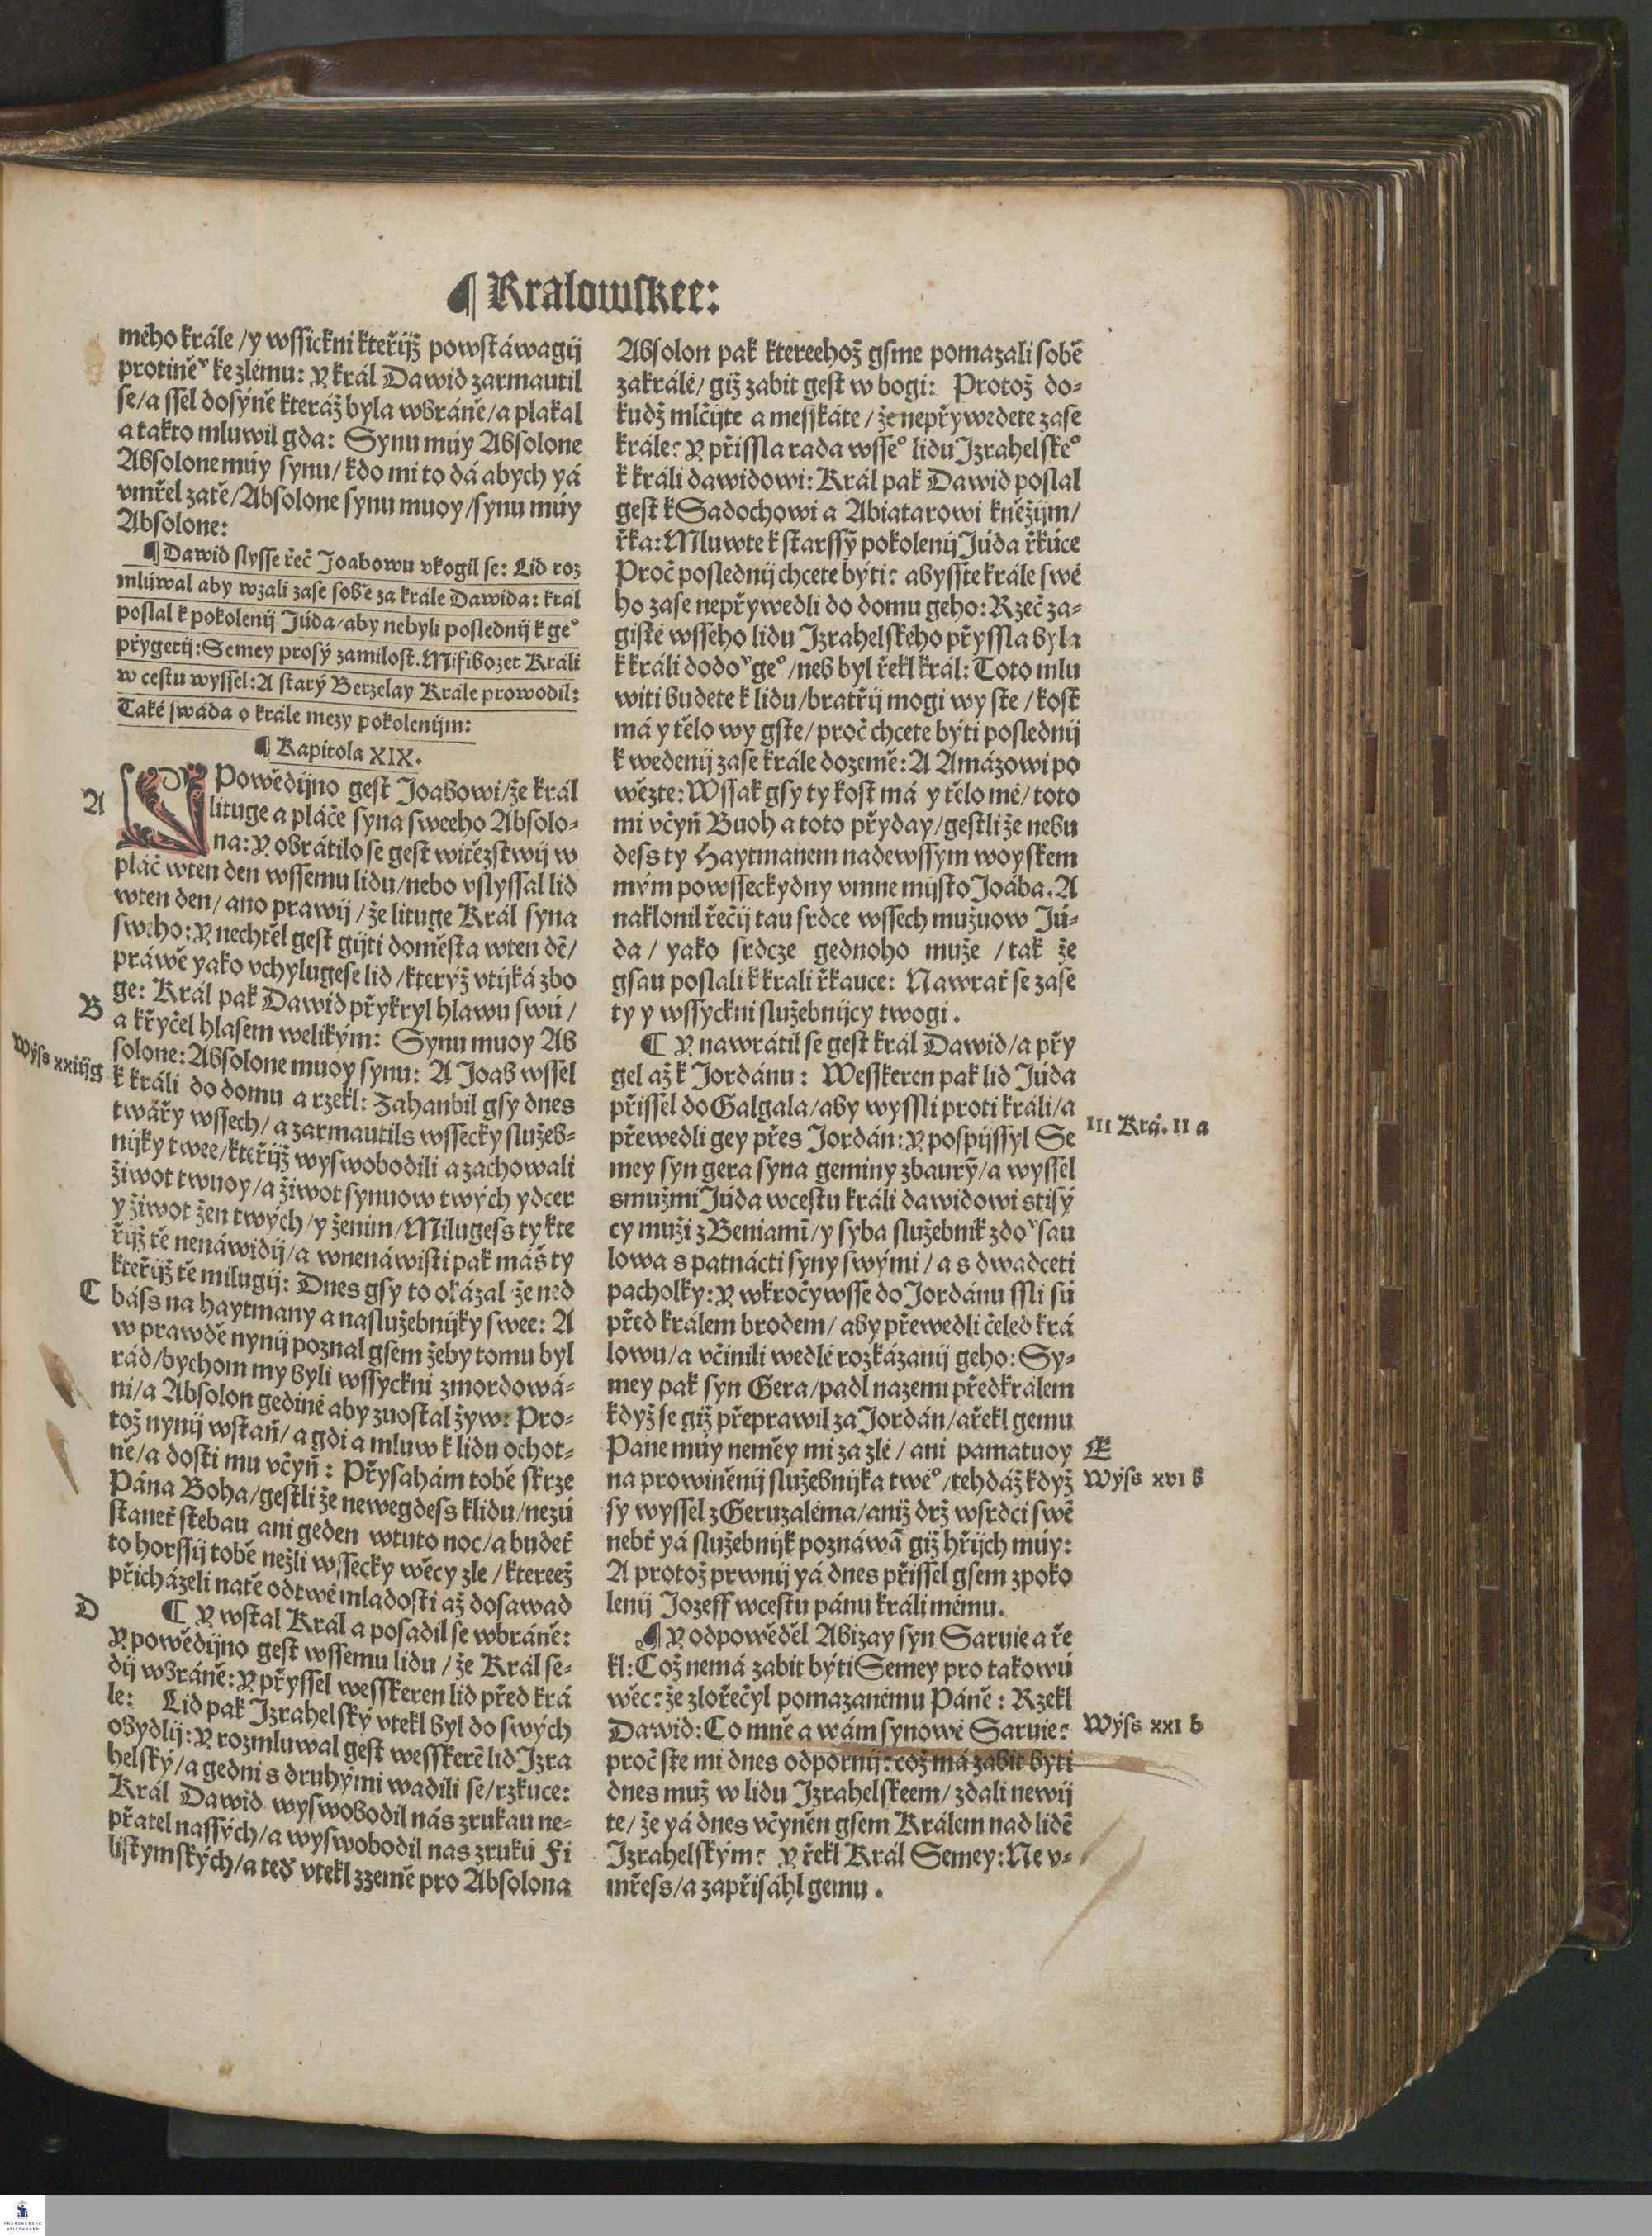 ¶ Kralowskee:
mého krále /y wssickni kteřijž powstáwagij
protině͛ ke zlému: Y král Dawid zarmautil
se/a ssel dosýně kteráž byla wbráně/a plakal
a takto mluwil gda: Synu múy Absolone
Absolone múy synu/ kdo mi to dá abych yá
vmřel zatě/Absolone synu muoy/synu múy
Absolone:
¶ Dawid slysse řeč Joabowu vkogil se: Lid roz
mlúwal aby wzali zase sobě za krále Dawida: král
poslal k pokolenij Júda/aby nebyli poslednij k ge°
přygetij: Semey prosý zamilost. Mifibozet Králi
w cestu wyssel: A starý Berzelay Krále prowodil:
Také swáda o krále mezy pokolenijm:
¶ Kapitola XIX.
A
Powědijno gest Joabowi/že král
lituge a pláče syna sweeho Absolo-
na: Y obrátilo se gest witězstwij w
pláč wten den wssemu lidu/nebo vslyssal lid
wten den/ ano prawij /že lituge Král syna
sweho: Y nechtěl gest gijti doměsta wten dē/
práwě yako vchylugese lid /kterýž vtijká zbo
ge: Král pak Dawid přykryl hlawu swú /
B
a křyčel hlasem welikým: Synu muoy Ab
solone: Absolone muoy synu: A Joab wssel
Wýss xxiiijg
k králi do domu a rzekl: Zahanbil gsy dnes
twářy wssech/ a zarmautils wssecky služeb-
nijky twee/kteřijž wyswobodili a zachowali
žiwot twuoy/a žiwot synuow twých ydcer
y žiwot žen twých /y ženim/ Milugess ty kte
řijž tě nenáwidij/a wnenáwisti pak máš ty
kteřijž tě milugij: Dnes gsy to okázal že ned
C
báss na haytmany a naslužebnijky swee: A
w prawdě nynij poznal gsem žeby tomu byl
rád/bychom my byli wssyckni zmordowá-
ni/a Absolon gedině aby zuostal žyw: Pro-
tož nynij wstaň/ a gdi a mluw k lidu ochot-
ně/a dosti mu včyň: Přysahám tobě skrze
Pána Boha/gestliže newegdess klidu/nezú
staneť stebau ani geden wtuto noc/a budeť
to horssij tobě nežli wssecky wěcy zle /ktereež
přicházeli natě odtwé mladosti až dosawad
D
C Y wstal Král a posadil se wbráně:
Y powědijno gest wssemu lidu / že Král se-
dij wbráně: Y přyssel wesskeren lid před krá
le: Lid pak Izrahelský vtekl byl do swých
obydlij: Y rozmluwal gest wesskerē lid Izra
helský/a gedni s druhými wadili se/rzkuce:
Král Dawid wyswobodil nás zrukau ne-
přatel nassých/a wyswobodil nas zrukú Fi
listymských/a teď vtekl zzemě pro Absolona
Absolon pak ktereehož gsme pomazali sobě
zakrále/ giž zabit gest w bogi: Protož do-
kudž mlčijte a messkáte /že nepřywedete zase
krále: Y přissla rada wsse° lidu Izrahelske°
k králi dawidowi: Král pak Dawid poslal
gest k Sadochowi a Abiatarowi kněžijm/
řka: Mluwte k starssý pokolenij Júda řkúce
Proč poslednij chcete býti: abysste krále swé
ho zase nepřywedli do domu geho: Rzeč za-
gisté wsseho lidu Izrahelského přyssla byla
k králi dodo͛ ge° /neb byl řekl král: Toto mlu
witi budete k lidu/bratřij mogi wy ste /kost
má y tělo wy gste/ proč chcete býti poslednij
k wedenij zase krále dozemě: A Amázowi po
wězte: Wssak gsy ty kost má y tělo mé/ toto
mi včyň Buoh a toto přyday/gestliže nebu
dess ty Haytmanem nadewssym woyskem
mým powsseckydny vmne mijsto Joába. A
naklonil řečij tau srdce wssech mužuow Jú-
da / yako srdcze gednoho muže /tak že
gsau poslali k krali řkauce: Nawrať se zase
ty y wssyckni služebnijcy twogi.
C Y nawrátil se gest král Dawid/a při
gel až k Jordánu: Wesskeren pak lid Júda
přissel do Galgala/aby wyssli proti králi/a
III Krá. II a
přewedli gey přes Jordán: Y pospijssyl Se
mey syn gera syna geminy zbaurý/a wyssel
smužmi Júda wcestu králi dawidowi stisý
cy muži zBeniamī/y syba služebnik zdo͛ sau
lowa s patnácti syny swými / a s dwadceti
pacholky: Y wkročywsse do Jordánu ssli sú
před králem brodem/ aby přewedli čeled krá
lowu/a včinili wedlé rozkázanij geho: Sy-
mey pak syn Gera/padl nazemi předkrálem
když se giž přeprawil za Jordán/ařekl gemu
Pane múy neměy mi za zlé / ani pamatuoy
E
na prowiněnij služebnijka twé° /tehdáž když
Wýss xvi b
sy wyssel zGeruzaléma/aniž drž wsrdci swē
nebť yá služebnijk poznáwā giž hřijch múy:
A protož prwnij yá dnes přissel gsem zpoko
lenij Jozeff wcestu pánu králi mému.
¶ Y odpowěděl Abizay syn Saruie a ře
kl: Což nemá zabit býti Semey pro takowú
wěc: že zlořečyl pomazanému Páně: Rzekl
Dawid: Co mně a wám synowé Saruie:
Wýss xxi b
proč ste mi dnes odpornij: což má zabit býti
dnes muž w lidu Izrahelskeem/ zdali newij
te/ že yá dnes včyněn gsem Králem nad lidē
Izrahelským: Y řekl Král Semey: Ne v-
mřess/a zapřisáhl gemu.
FRANCKESCHE
STIFTUNGEN